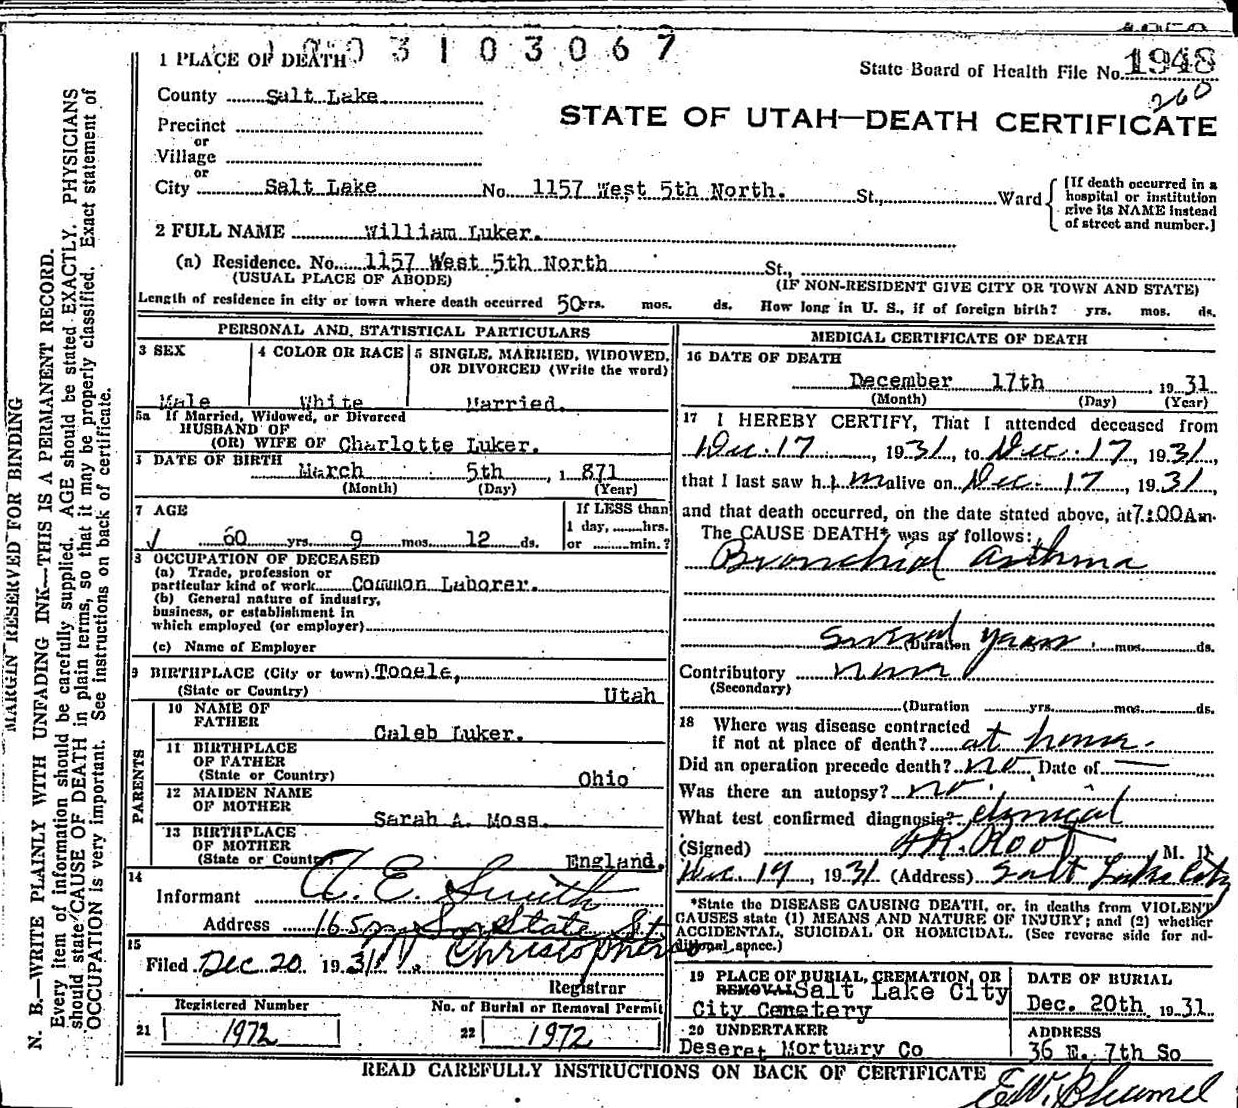 1003103067
1 PLACE OF DEATH
State Board of Health File No. 1948
260
County Salt Lake.
STATE OF UTAH—DEATH CERTIFICATE
Precinct
or
Village
or
City Salt Lake No. 1157 West 5th North. St., Ward
[If death occurred in a
hospital or institution
give its NAME instead
of street and number.]
2 FULL NAME William Luker.
(a) Residence. No. 1157 West 5th North St.,
(USUAL PLACE OF ABODE) (IF NON-RESIDENT GIVE CITY OR TOWN AND STATE)
Length of residence in city or town where death occurred 50 yrs. mos. ds. How long in U. S., if of foreign birth? yrs. mos. ds.
PERSONAL AND STATISTICAL PARTICULARS
3 SEX
Male
4 COLOR OR RACE
White
5 SINGLE, MARRIED, WIDOWED,
OR DIVORCED (Write the word)
Married.
5a If Married, Widowed, or Divorced
HUSBAND OF
(OR) WIFE OF Charlotte Luker.
DATE OF BIRTH
March 5th, 1871
(Month) (Day) (Year)
7 AGE
60 yrs. 9 mos. 12 ds.
If LESS than
1 day, hrs.
or min.?
8 OCCUPATION OF DECEASED
(a) Trade, profession or
particular kind of work Common Laborer.
(b) General nature of industry,
business, or establishment in
which employed (or employer)
(c) Name of Employer
9 BIRTHPLACE (City or town) Tooele,
(State or Country) Utah
PARENTS
10 NAME OF
FATHER Caleb Luker.
11 BIRTHPLACE
OF FATHER
(State or Country) Ohio
12 MAIDEN NAME
OF MOTHER Sarah A. Moss.
13 BIRTHPLACE
OF MOTHER
(State or Country) England.
14
Informant A. E. Smith
Address State St.
15
Filed Dec 20 1931
Registrar
Registered Number
21 1972
No. of Burial or Removal Permit
22 1972
MEDICAL CERTIFICATE OF DEATH
16 DATE OF DEATH
December 17th 1931
(Month) (Day) (Year)
17 I HEREBY CERTIFY, That I attended deceased from
Dec. 17, 1931, to Dec. 17, 1931,
that I last saw him alive on Dec. 17, 1931,
and that death occurred, on the date stated above, at 7:00 Am.
The CAUSE DEATH* was as follows:
Bronchial asthma
Several years
(Duration mos. ds.
Contributory none
(Secondary)
(Duration yrs. mos. ds.
18 Where was disease contracted
if not at place of death? at home.
Did an operation precede death? no. Date of —
Was there an autopsy? no.
What test confirmed diagnosis? clinical
(Signed) Root M. D.
Dec 19, 1931 (Address) Salt Lake City
*State the DISEASE CAUSING DEATH, or, in deaths from VIOLENT
CAUSES state (1) MEANS AND NATURE OF INJURY; and (2) whether
ACCIDENTAL, SUICIDAL OR HOMICIDAL. (See reverse side for ad-
ditional space.)
19 PLACE OF BURIAL, CREMATION, OR
REMOVAL Salt Lake City
City Cemetery
DATE OF BURIAL
Dec. 20th 1931
20 UNDERTAKER
Deseret Mortuary Co
ADDRESS
36 E. 7th So
READ CAREFULLY INSTRUCTIONS ON BACK OF CERTIFICATE
MARGIN RESERVED FOR BINDING
N. B.—WRITE PLAINLY WITH UNFADING INK—THIS IS A PERMANENT RECORD.
Every item of information should be carefully supplied. AGE should be stated EXACTLY. PHYSICIANS
should state CAUSE OF DEATH in plain terms, so that it may be properly classified. Exact statement of
OCCUPATION is very important. See instructions on back of certificate.